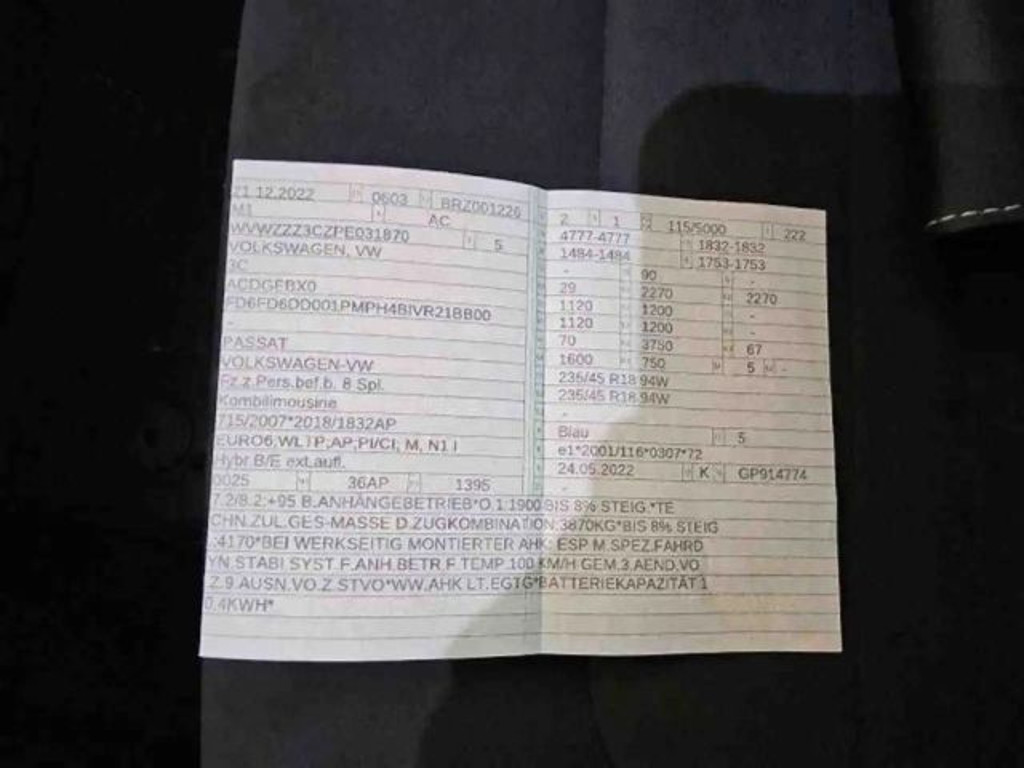 21.12.2022 0603 BRZ001226
M1 AC
WVWZZZ3CZPE031870 5
VOLKSWAGEN, VW
3C
ACDGEBX0
FD6FD6DD001PMPH4BIVR21BB00
-
PASSAT
VOLKSWAGEN-VW
Fz.z.Pers.bef.b. 8 Spl.
Kombilimousine
715/2007*2018/1832AP
EURO6,WLTP,AP,PI/CI, M, N1 I
Hybr.B/E ext.aufl.
0025 36AP 1395
2 1 115/5000 222
4777-4777 1832-1832
1484-1484 1753-1753
- 90 -
29 2270 2270
1120 1200 -
1120 1200 -
70 3750 67
1600 750 5 -
235/45 R18 94W
235/45 R18 94W
-
Blau 5
e1*2001/116*0307*72
24.05.2022 K GP914774
-
7.2/8.2:+95 B.ANHÄNGEBETRIEB*O.1:1900 BIS 8% STEIG.*TE
CHN.ZUL.GES-MASSE D.ZUGKOMBINATION:3870KG*BIS 8% STEIG
.:4170*BEI WERKSEITIG MONTIERTER AHK: ESP M.SPEZ.FAHRD
YN.STABI.SYST.F.ANH.BETR.F.TEMP.100 KM/H GEM.3.AEND.VO
Z.9.AUSN.VO.Z.STVO*WW.AHK LT.EGTG*BATTERIEKAPAZITÄT:1
0,4KWH*